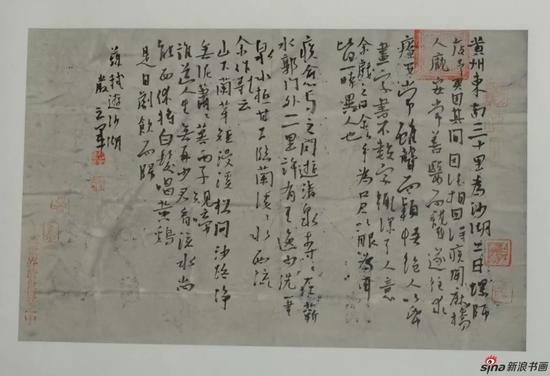 黃州東南三十里為沙湖亦曰螺師
店予買田其間因往相田得疾聞麻橋
人龐安常善醫而聾遂往求
療安常雖聾而穎悟絕人以紙
畫字書不數字輒深了人意
余戲之曰余以手為口君以眼為耳
皆一時異人也
疾愈與之同遊清泉寺寺在蘄
水郭門外二里許有王逸少洗筆
泉水極甘下臨蘭溪溪水西流
余作歌云
山下蘭芽短浸溪松間沙路淨
無泥蕭蕭暮雨子規啼
誰道人生無再少君看流水尚
能西休將白髮唱黃鷄
是日劇飲而歸
蘇軾遊沙湖
sina新浪书画